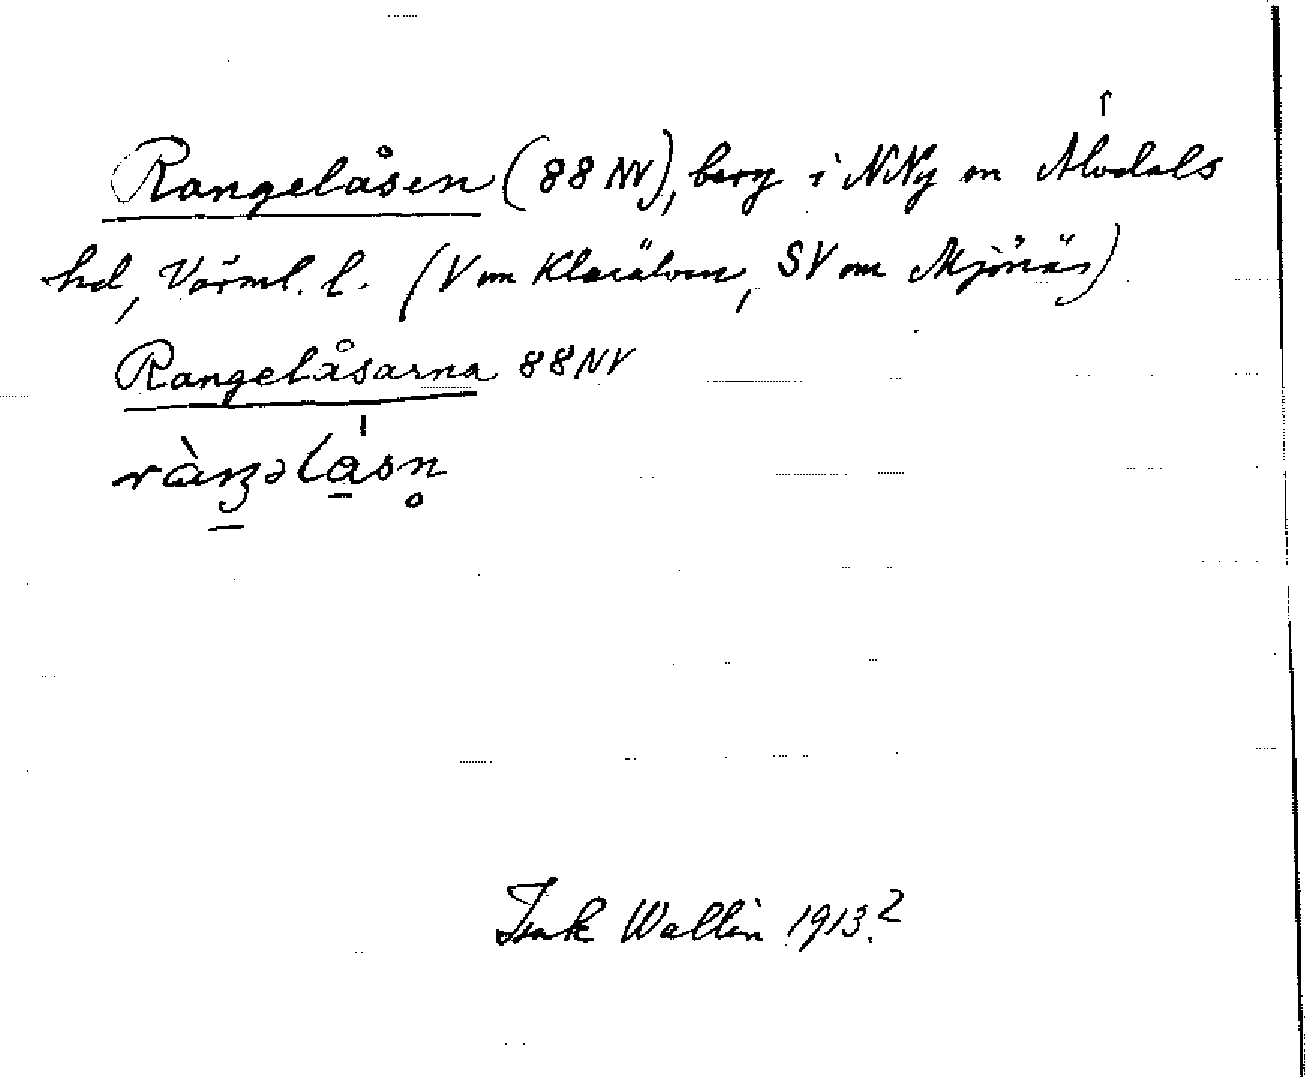 Rangelåsen (88 NV), berg i NNy sn Älvdals
hd, Värml. l. (V om Klarälven, SV om Mjönäs)
Rangelåsarna 88NV
Isak Wallin 1913.2